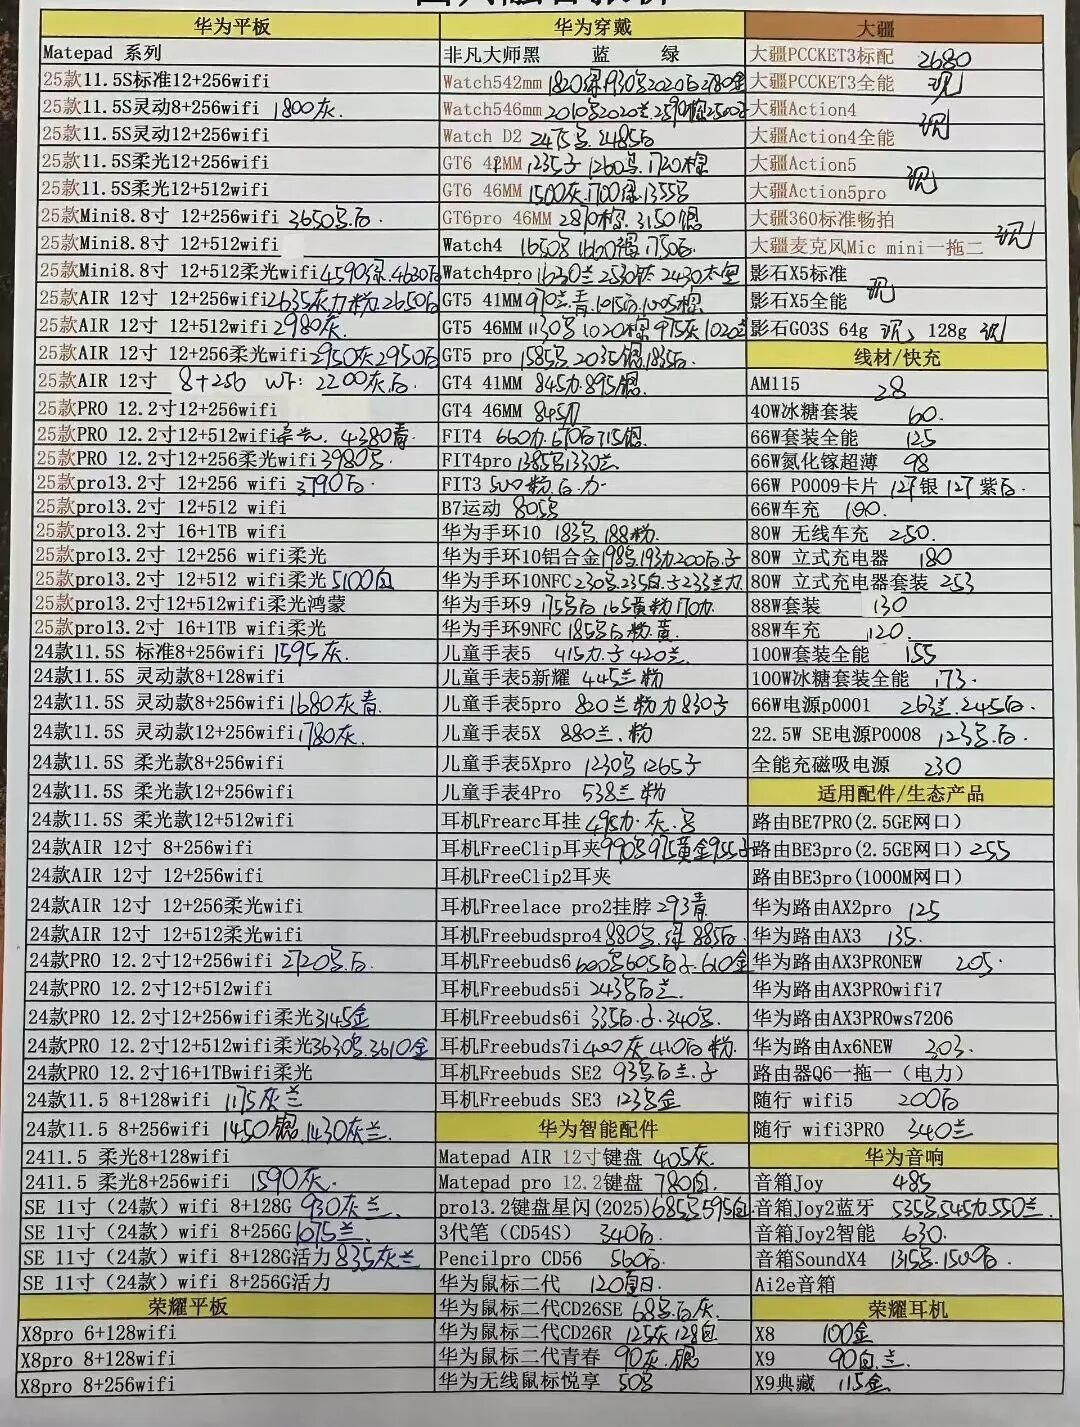 华为平板
Matepad 系列
25款11.5S标准12+256wifi
25款11.5S灵动8+256wifi 1800灰.
25款11.5S灵动12+256wifi
25款11.5S柔光12+256wifi
25款11.5S柔光12+512wifi
25款Mini8.8寸 12+256wifi 3650
25款Mini8.8寸 12+512wifi
25款Mini8.8寸 12+512柔光wifi 4590绿.4630
25款AIR 12寸 12+256wifi 2635灰 粉.2650
25款AIR 12寸 12+512wifi 2980灰.
25款AIR 12寸 12+256柔光wifi 2950灰.2950
25款AIR 12寸 8+256 WF: 2200灰
25款PRO 12.2寸12+256wifi
25款PRO 12.2寸12+512wifi柔光. 4380青.
25款PRO 12.2寸12+256柔光wifi 3980
25款pro13.2寸 12+256 wifi 3790
25款pro13.2寸 12+512 wifi
25款pro13.2寸 16+1TB wifi
25款pro13.2寸 12+256 wifi柔光
25款pro13.2寸 12+512 wifi柔光 5100白
25款pro13.2寸12+512wifi柔光鸿蒙
25款pro13.2寸 16+1TB wifi柔光
24款11.5S 标准8+256wifi 1595灰.
24款11.5S 灵动款8+128wifi
24款11.5S 灵动款8+256wifi 1680灰青.
24款11.5S 灵动款12+256wifi 1780灰.
24款11.5S 柔光款8+256wifi
24款11.5S 柔光款12+256wifi
24款11.5S 柔光款12+512wifi
24款AIR 12寸 8+256wifi
24款AIR 12寸 12+256wifi
24款AIR 12寸 12+256柔光wifi
24款AIR 12寸 12+512柔光wifi
24款PRO 12.2寸12+256wifi 2720
24款PRO 12.2寸12+512wifi
24款PRO 12.2寸12+256wifi柔光 3145金
24款PRO 12.2寸12+512wifi柔光 3630 3610金
24款PRO 12.2寸16+1TBwifi柔光
24款11.5 8+128wifi 1175灰兰
24款11.5 8+256wifi 1450银.1430灰兰.
2411.5 柔光8+128wifi
2411.5 柔光8+256wifi 1590灰.
SE 11寸（24款）wifi 8+128G 930灰兰
SE 11寸（24款）wifi 8+256G 1075兰.
SE 11寸（24款）wifi 8+128G活力 835灰兰
SE 11寸（24款）wifi 8+256G活力
荣耀平板
X8pro 6+128wifi
X8pro 8+128wifi
X8pro 8+256wifi
华为穿戴
非凡大师黑 蓝 绿
Watch542mm 1820绿1930 2020 2780金
Watch546mm 2010 2020兰.2590棕2500
Watch D2 2475 2485
GT6 41MM 1235 1260 1720棕
GT6 46MM 1500灰.1700绿.1355
GT6pro 46MM 2870棕.3150银
Watch4 1650 1660银.1750
Watch4pro 1630兰2530 2430
GT5 41MM 970兰.青.1015 1005棕
GT5 46MM 1130 1020棕.975灰1020兰
GT5 pro 1585 2035银.1835
GT4 41MM 845 895银.
GT4 46MM 845
FIT4 660 670 715银.
FIT4pro 1385 1330兰
FIT3 500粉
B7运动 805
华为手环10 183 188粉
华为手环10铝合金 198 193 200
华为手环10NFC 230 235白. 233兰
华为手环9 175 165黄粉170
华为手环9NFC 185 粉.黄
儿童手表5 415 420兰.
儿童手表5新耀 445兰粉
儿童手表5pro 820兰粉 830
儿童手表5X 880兰.粉
儿童手表5Xpro 1230 1265
儿童手表4Pro 538兰 粉
耳机Frearc耳挂 495 灰.
耳机FreeClip耳夹 990 975黄金955
耳机FreeClip2耳夹
耳机Freelace pro2挂脖 293青
耳机Freebudspro4 880 绿 885
耳机Freebuds6 600 605 610金
耳机Freebuds5i 243 兰.
耳机Freebuds6i 335 340
耳机Freebuds7i 400灰410 粉.
耳机Freebuds SE2 93 兰.
耳机Freebuds SE3 123 金
华为智能配件
Matepad AIR 12寸键盘 405灰.
Matepad pro 12.2键盘 780白.
pro13.2键盘星闪(2025) 685 595白
3代笔（CD54S） 340
Pencilpro CD56 560
华为鼠标二代 120
华为鼠标二代CD26SE 68 灰
华为鼠标二代CD26R 125灰128白
华为鼠标二代青春 90灰.银
华为无线鼠标悦享 50
大疆
大疆PCCKET3标配 2680
大疆PCCKET3全能 现
大疆Action4
大疆Action4全能 现
大疆Action5
大疆Action5pro 现
大疆360标准畅拍
大疆麦克风Mic mini一拖二 现
影石X5标准
影石X5全能 现
影石GO3S 64g 现, 128g 现
线材/快充
AM115 28
40W冰糖套装 60.
66W套装全能 125
66W氮化镓超薄 98
66W P0009卡片 127银 127紫
66W车充 100.
80W 无线车充 250.
80W 立式充电器 180
80W 立式充电器套装 253
88W套装 130
88W车充 120.
100W套装全能 155
100W冰糖套装全能 173.
66W电源p0001 263兰.245
22.5W SE电源P0008 123
全能充磁吸电源 230
适用配件/生态产品
路由BE7PRO(2.5GE网口)
路由BE3pro(2.5GE网口) 255
路由BE3pro(1000M网口)
华为路由AX2pro 125
华为路由AX3 135.
华为路由AX3PRONEW 205.
华为路由AX3PROwifi7
华为路由AX3PROws7206
华为路由Ax6NEW 303.
路由器Q6一拖一（电力）
随行 wifi5 200
随行 wifi3PRO 340兰
华为音响
音箱Joy 485
音箱Joy2蓝牙 535 545 550兰.
音箱Joy2智能 630.
音箱SoundX4 1315 1500
Ai2e音箱
荣耀耳机
X8 100金
X9 90白.兰.
X9典藏 115金.